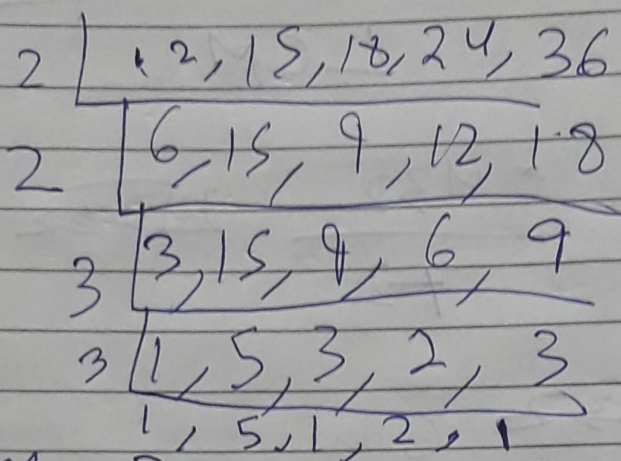 2 | 12, 15, 18, 24, 36
2 | 6, 15, 9, 12, 18
3 | 3, 15, 9, 6, 9
3 | 1, 5, 3, 2, 3
1, 5, 1, 2, 1